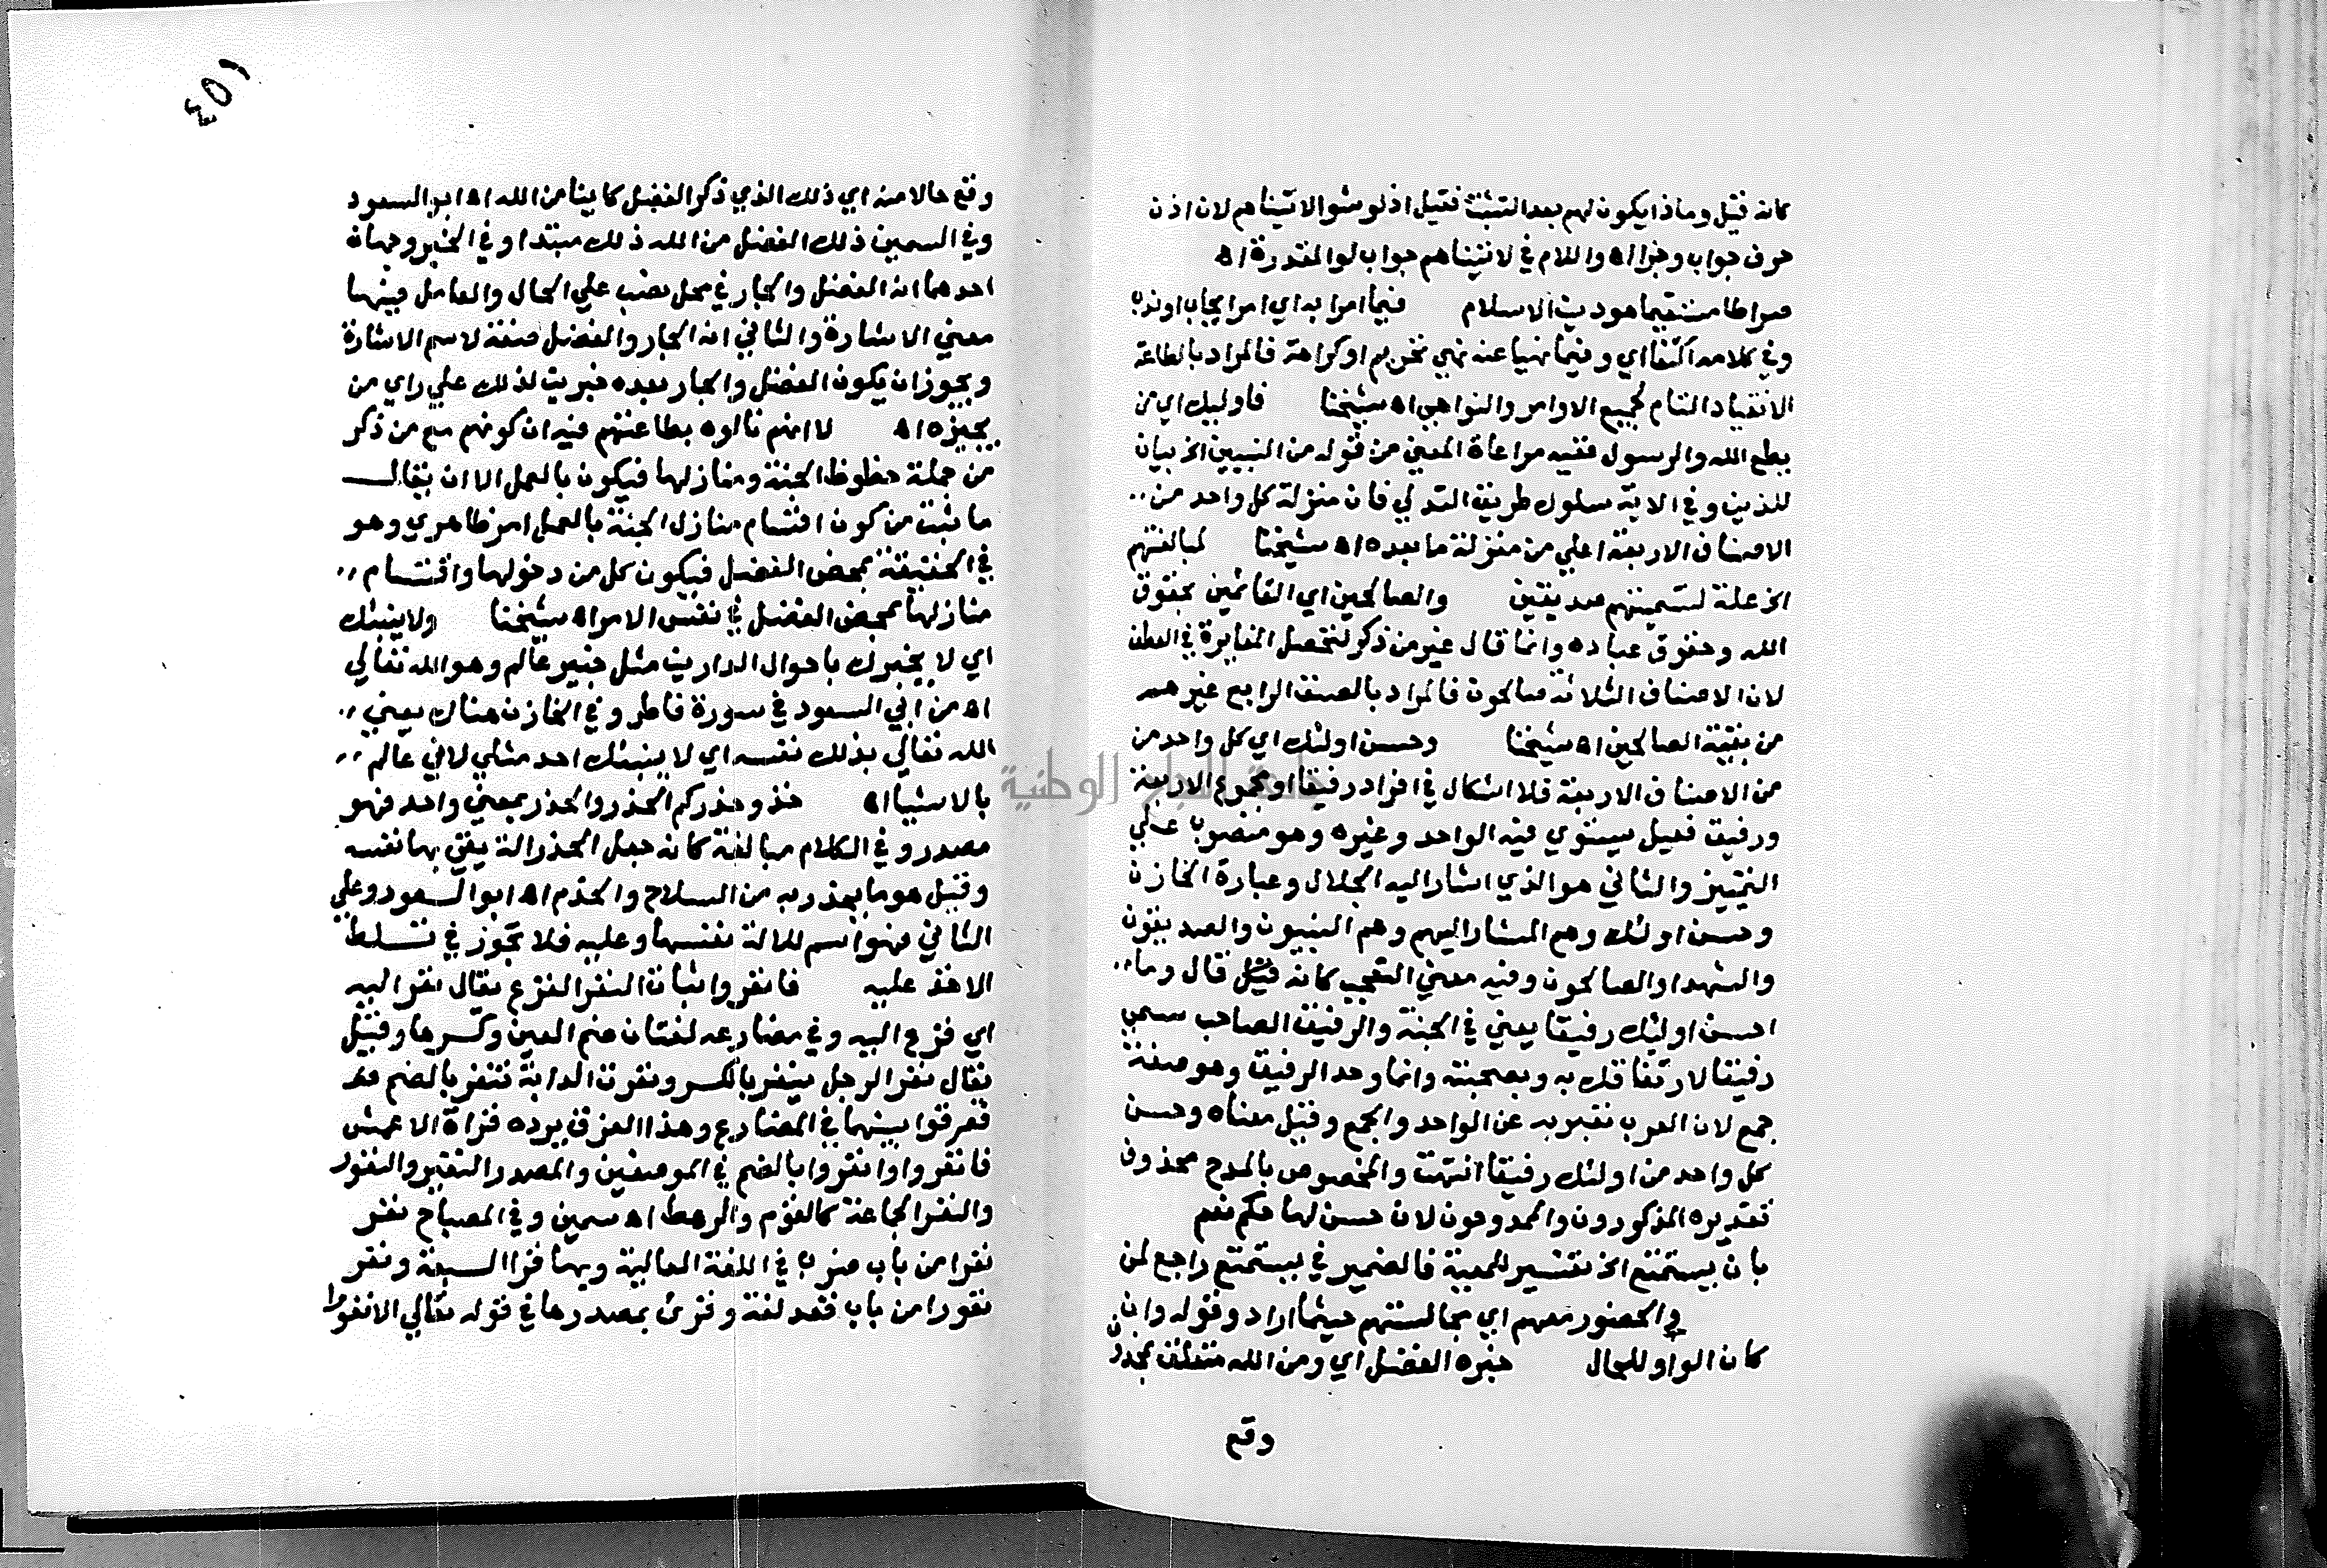 كانه قيل وماذا يكون لهم بعد التثبت فقيل اذ لو ثبتوا لاتيناهم لان اذن
حرف جواب وجزا اه واللام في لاتيناهم جواب لو المقدرة اه
صراطا مستقيما هو دين الاسلام فيما امرا به اي امر ايجاب او ندب
وفي كلامه اكتفا اي وفيما نهيا عنه نهي تحريم او كراهة فالمراد بالطاعة
الانقياد التام لجميع الاوامر والنواهي اه شيخنا فاوليك اي من
يطع الله والرسول ففيه مراعاة المعنى من قوله من النبيين الخ بيان
للذين وفي الاية سلوك طريق التدلي فان منزلة كل واحد من
الاصناف الاربعة اعلي من منزلة ما بعده اه شيخنا لمبالغتهم
الخ علة لتسميتهم صديقين والصالحين اي القائمين بحقوق
الله وحقوق عباده وانما قال غير من ذكر لتحصل المغايرة في العطف
لان الاصناف الثلاثة صالحون فالمراد بالصنف الرابع غيرهم
من بقية الصالحين اه شيخنا وحسن اولئك اي كل واحد من
من الاصناف الاربعة فلا اشكال في افراد رفيقا او مجموع الاربعة
ورفيق فعيل يستوي فيه الواحد وغيره وهو منصوب علي
التمييز والثاني هو الذي اشار اليه الجلال وعبارة الخازن
وحسن اولئك وهم المشار اليهم وهم النبيون والصديقون
والشهدا والصالحون وفيه معني التعجب كانه قيل قال وما
احسن اوليك رفيقا يعني في الجنة والرفيق الصاحب سمي
رفيقا لارتفاقك به وبصحبته وانما وحد الرفيق وهو صفة
جمع لان العرب تعبر به عن الواحد والجمع وقيل معناه وحسن
كل واحد من اولئك رفيقا انتهت والمخصوص بالمدح محذوف
تقديره المذكورون والممدوحون لان حسن لها حكم نعم
بان يستمتع الخ تفسير للمعية فالضمير في يستمتع راجع لمن
والحضور معهم اي مجالستهم حيثما اراد وقوله وان
كان الواو للحال خبره الفضل اي ومن الله متعلق بمحذوف
وقع
٤٥١
وقع حالا منه اي ذلك الذي ذكر الفضل كاينا من الله اه ابو السعود
وفي السمين ذلك الفضل من الله ذلك مبتدا وفي الخبر وجهان
احدهما انه الفضل والجار في محل نصب علي الحال والعامل فيها
معني الاشارة والثاني انه الجار والفضل صفة لاسم الاشارة
ويجوز ان يكون الفضل والجار بعده خبرين لذلك علي راي من
يجيزه اه لا انهم نالوه بطاعتهم فيه ان كونهم مع من ذكر
من جملة حظوظ الجنة ومنازلها فيكون بالعمل الا ان يقال
ما ثبت من كون اقتسام منازل الجنة بالعمل امر ظاهري وهو
في الحقيقة بمحض الفضل فيكون كل من دخولها واقتسام
منازلها بمحض الفضل في نفس الامر اه شيخنا ولا ينبئك
اي لا يخبرك باحوال الدارين مثل خبير عالم وهو الله تعالي
اه من ابي السعود في سورة فاطر وفي الخازن هناك يعني
الله تعالي بذلك نفسه اي لا ينبئك احد مثلي لاني عالم
بالاشيا اه خذوا حذركم الحذر والحذر بمعني واحد فهو
مصدر وفي الكلام مبالغة كانه جعل الحذر الة يقي بها نفسه
وقيل هو ما يحذر به من السلاح والحزم اه ابو السعود وعلي
الثاني فهو اسم للالة نفسها وعليه فلا تجوز في تسلط
الاخذ عليه فانفروا ثبات النفر الفزع يقال نفر اليه
اي فزع اليه وفي مضارعه لغتان ضم العين وكسرها وقيل
يقال نفر الرجل ينفر بالكسر ونفرت الدابة تنفر بالضم
ففرقوا بينهما في المضارع وهذا الفرق يرده قراة الاعمش
فانفروا او انفروا بالضم في الموضعين والمصدر النفير والنفور
والنفر الجماعة كالقوم والرهط اه سمين وفي المصباح نفر
نفرا من باب ضرب في اللغة العالية وبها قرا السبعة ونفر
نفورا من باب قعد لغة وقرئ بمصدرها في قوله تعالي الا نفورا